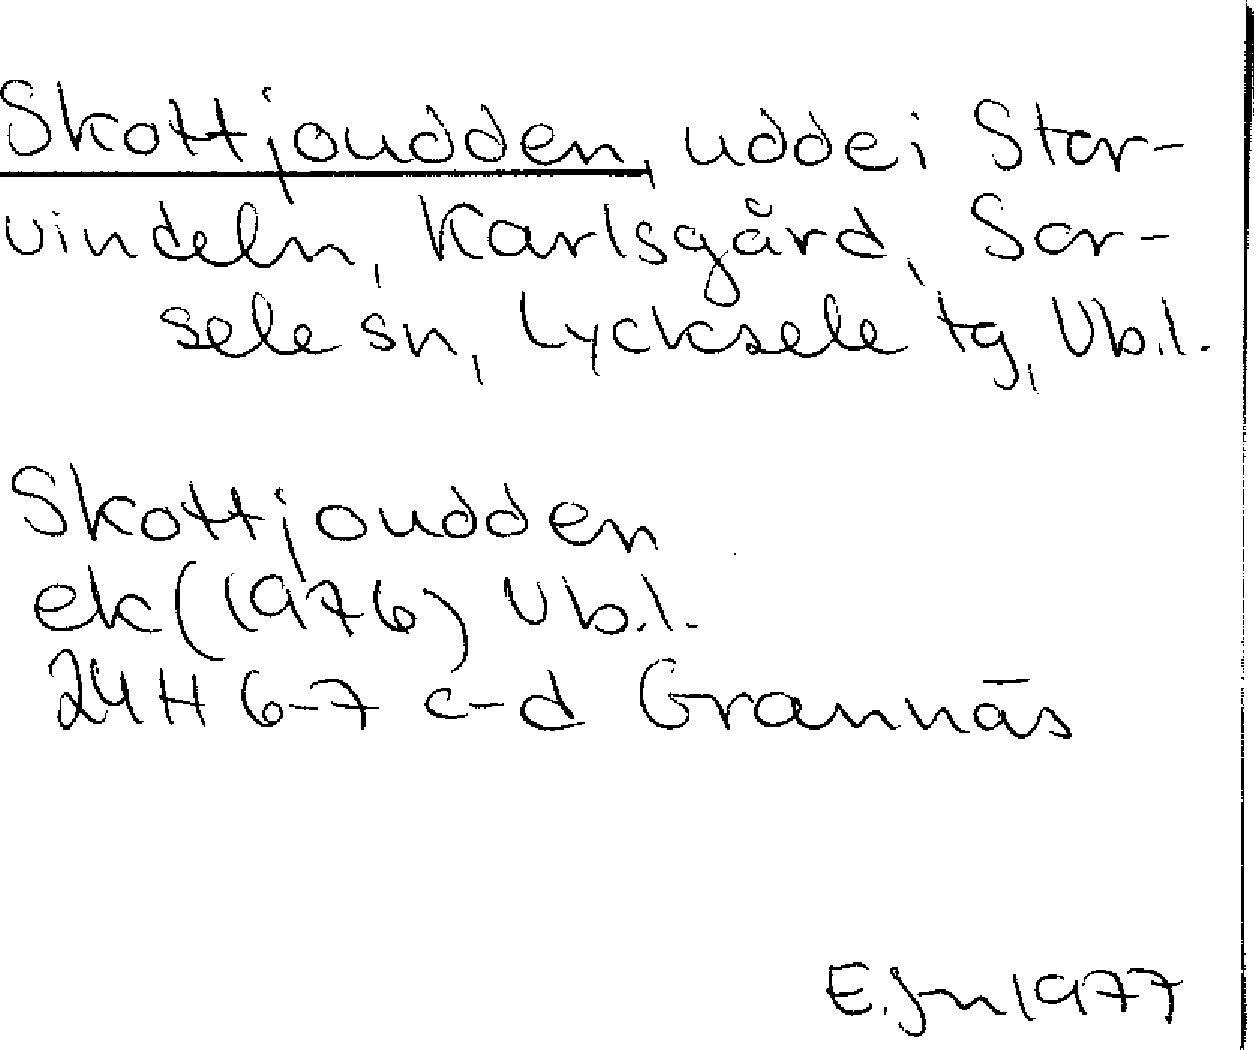 Skottjoudden, udde i Stor-
vindeln, Karlsgård, Sor-
sele sn, Lycksele tg, Vb.l.
Skottjoudden
ek (1976) Vb.l.
24H 6-7 c-d Grannäs
E.Jn 1977